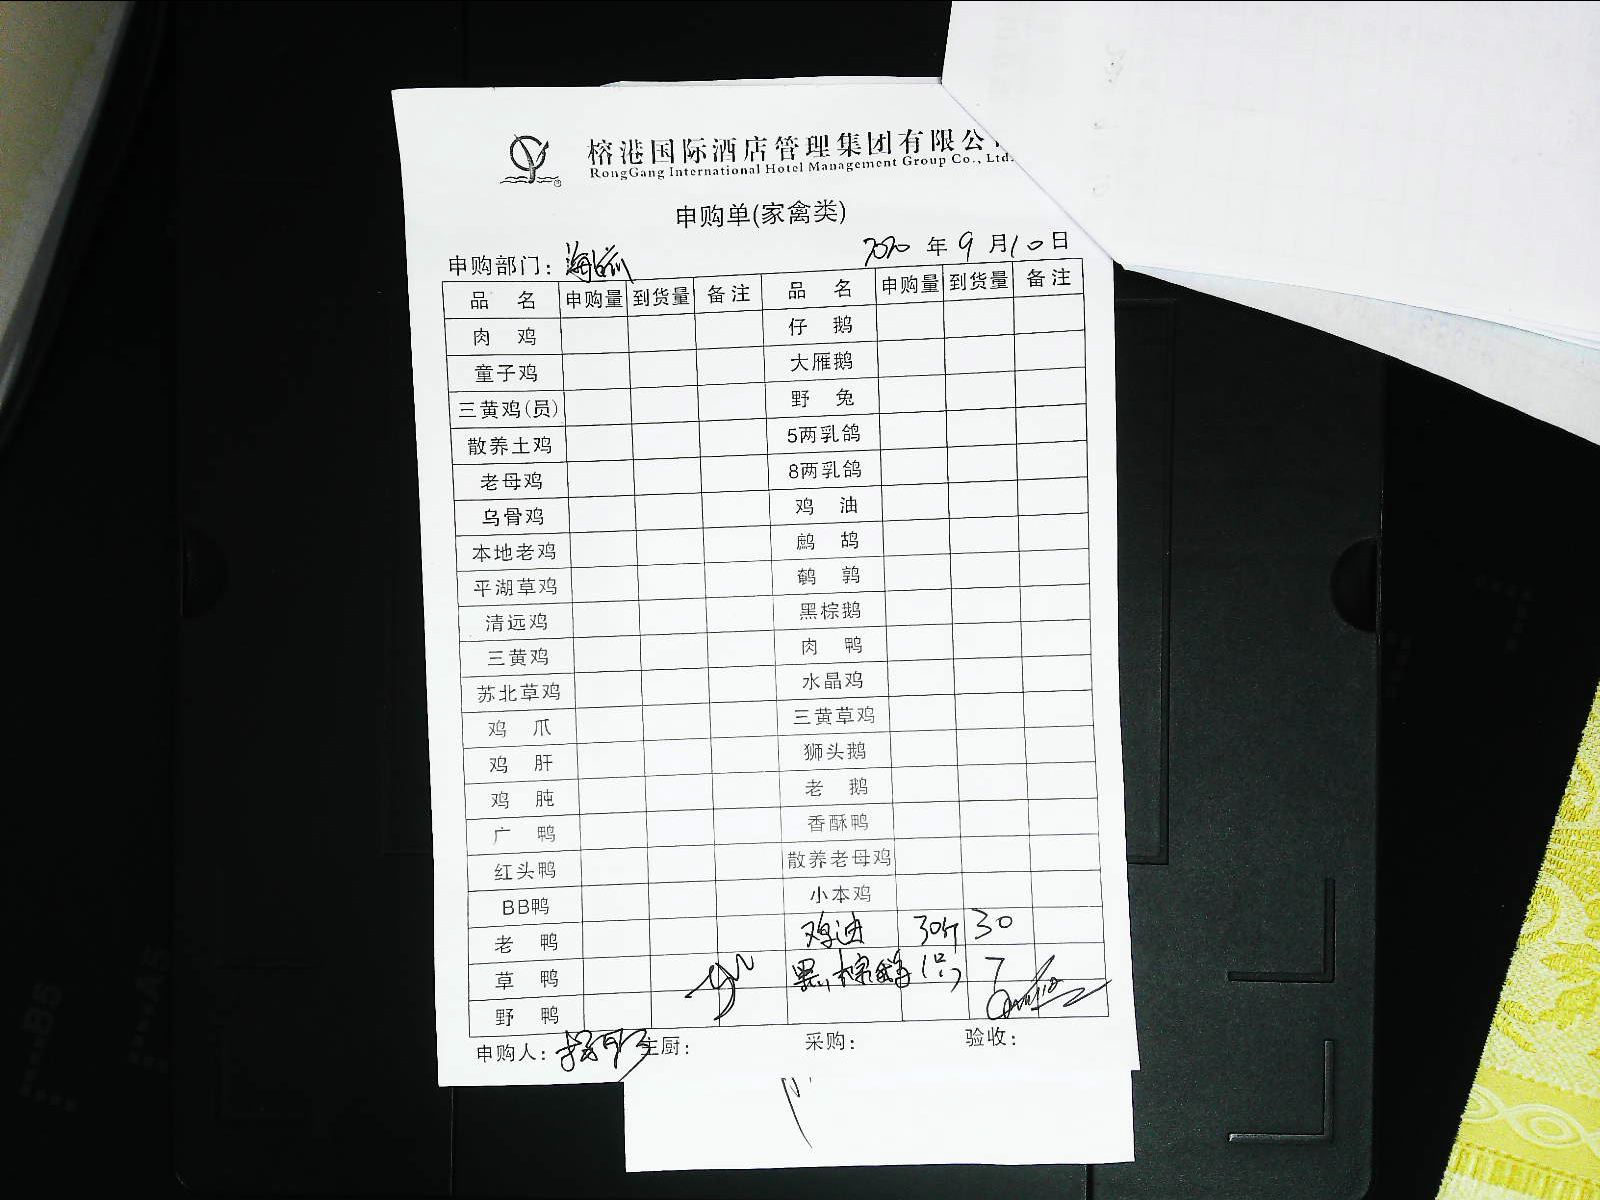 榕港国际酒店管理集团有限公
RongGang International Hotel Management Group Co., Ltd.
申购单(家禽类)
申购部门: 2020年9月10日
品名 申购量 到货量 备注 品名 申购量 到货量 备注
肉鸡 仔鹅
童子鸡 大雁鹅
三黄鸡(员) 野兔
散养土鸡 5两乳鸽
老母鸡 8两乳鸽
乌骨鸡 鸡油
本地老鸡 鹧鸪
平湖草鸡 鹌鹑
清远鸡 黑棕鹅
三黄鸡 肉鸭
苏北草鸡 水晶鸡
鸡爪 三黄草鸡
鸡肝 狮头鹅
鸡肫 老鹅
广鸭 香酥鸭
红头鸭 散养老母鸡
BB鸭 小本鸡
老鸭 鸡油 30斤 30
草鸭 黑棕鹅
野鸭
申购人: 主厨: 采购: 验收: